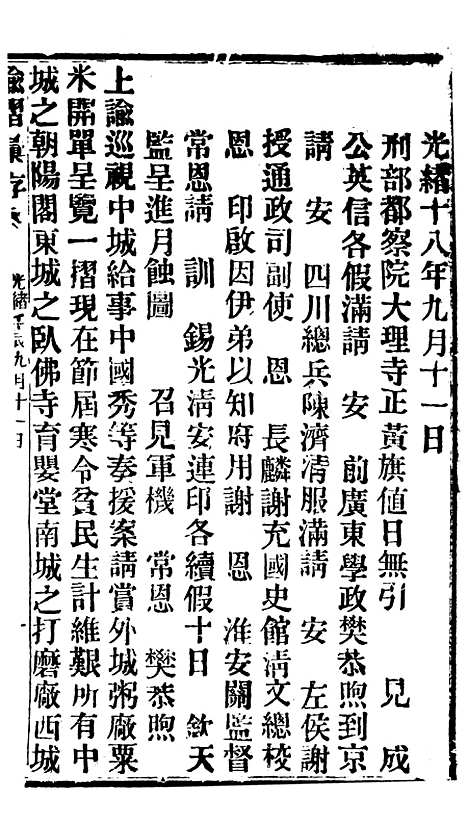 光緒十八年九月十一日
刑部都察院大理寺正黃旗値日無引　見　成
公英信各假滿請　安　前廣東學政樊恭煦到京
請　安　四川總兵陳濟清服滿請　安　左侯謝
授通政司副使　恩　長麟謝充國史館清文總校
恩　印啟因伊弟以知府用謝　恩　淮安關監督
常恩請　訓　錫光清安連印各續假十日　欽天
監呈進月蝕圖　召見軍機　常恩　樊恭煦
上諭巡視中城給事中國秀等奏援案請賞外城粥廠粟
米開單呈覽一摺現在節屆寒令貧民生計維艱所有中
城之朝陽閣東城之臥佛寺育嬰堂南城之打磨廠西城
諭摺彙存 光緒壬辰九月十一日 一